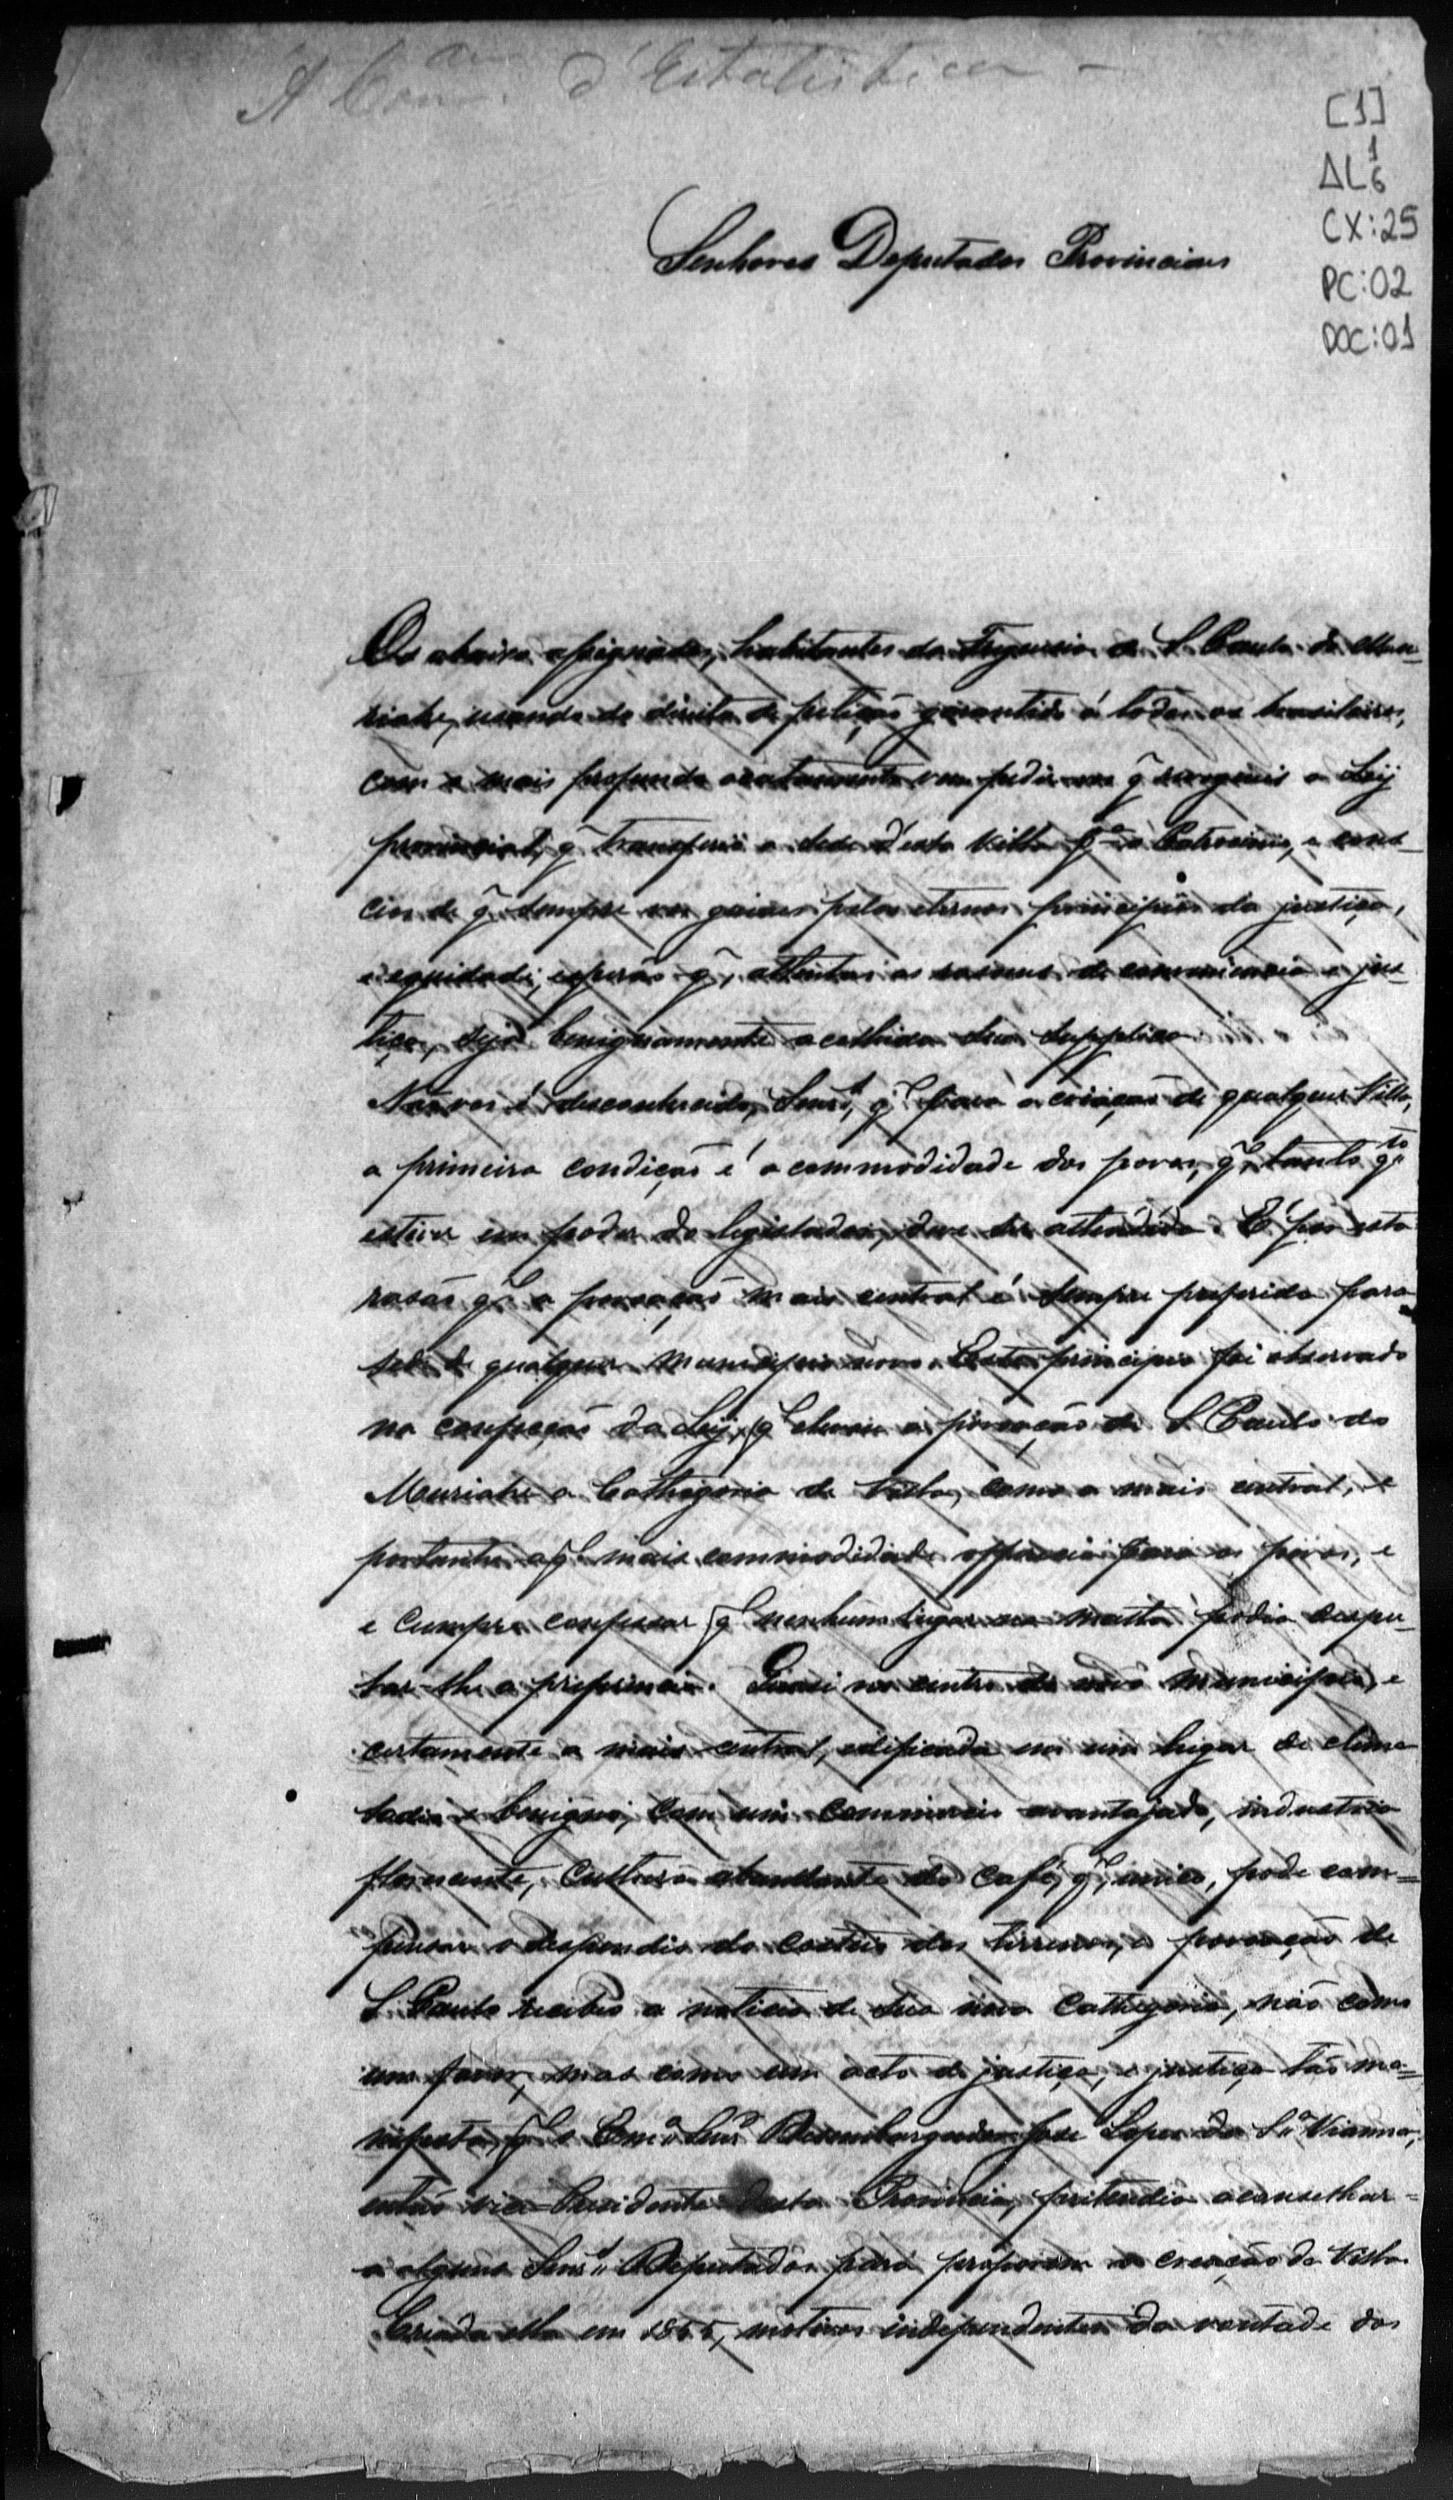 A Com.am d'Estatistica -
[1]
AL 1/6
CX:25
PC:02
DOC:01
Senhores Deputados Provinciaes
Os abaixo assignados, habitantes da Freguesia de S. Paulo do Mu-
riahe, usando do direito de petição garantido á todos os brasileiros,
com o mais profundo acatamento vem pedir-vos q̃ revogueis a Leij
provincial, q̃ transferio a sede d'esta Villa pa o Patrocinio, e cons-
cios de q̃ sempre vos guiaes pelos eternos principios da justiça,
e equidade, esperão q̃, attentas as rasoens de conveniencia e jus-
tiça, seja benignamente acolhida sua supplica
Não vos é desconhecido, Senrs, q̃ para a criação de qualquer Villa,
a primeira condição é a commodidade dos povos, q̃, tanto qto
estiver em poder do legislador, deve ser attendida. É por esta
rasão q̃ a povoação mais central é sempre preferida para
sede de qualquer municipio novo. Este principio foi observado
na confecção da Leij, q̃ elevou a povoação de S. Paulo do
Muriahe a Cathegoria de Villa, como a mais central, e
portanto a q̃ mais commodidade offerecia para os povos, e
e cumpre confessar q̃ nenhum lugar na matta podia dispu-
tar-lhe a preferencia. Quasi no centro do novo municipio, e
certamente a mais central, edificada em um lugar de clima
sadio e benigno, com um commercio avantajado, industria
florescente, cultura abundante do café, q̃, unico, pode com=
pensar o dispendio do custeio dos terrenos, a povoação de
S. Paulo recebeo a noticia de sua nova Cathegoria, não como
um favor, mas como um acto de justiça, e justiça tão ma=
nifesta, q̃ o Exmo Senr Desembargador José Lopes da Sa Vianna,
então vice-Presidente desta Provincia, pretendia aconselhar=
a alguns Senrs Deputados para proporem a creação da Villa.
Criada ella em 1855, motivos independentes da vontade dos